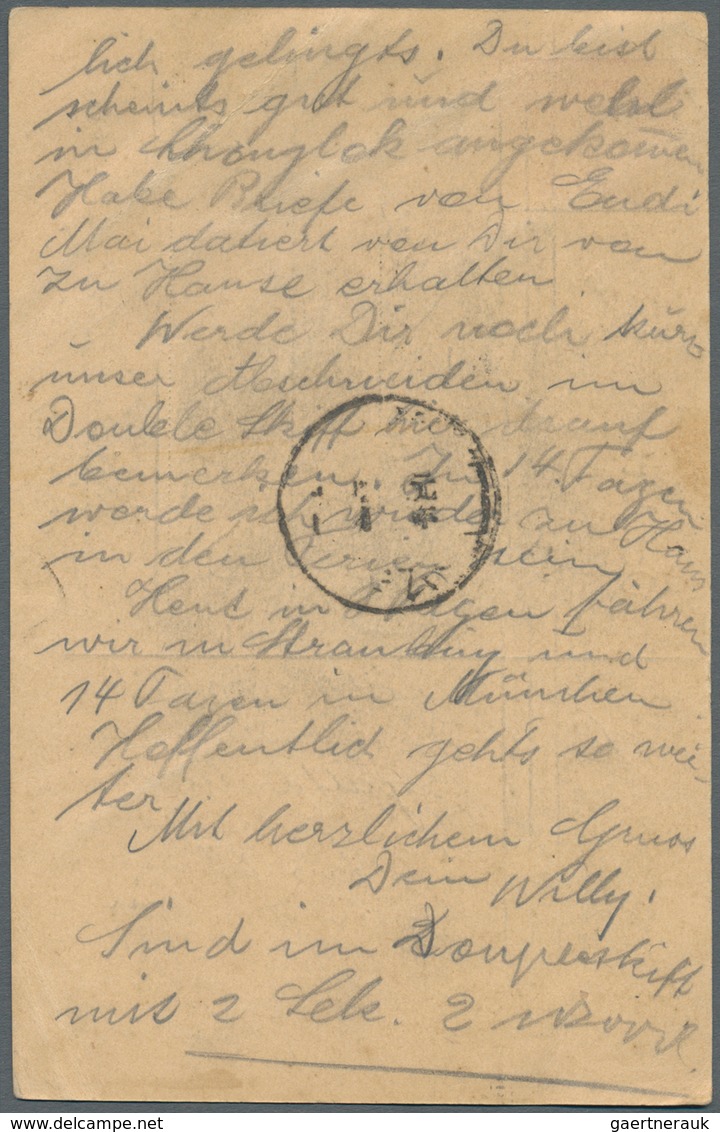 lich gelingts. Du bist
scheints gut und wohl
in angekommen
Habe Briefe von Endi
Mai datiert von Dir von
zu Hause erhalten
Werde Dir noch kurz
unser Abschneiden im
Double Skiff hier drauf
bemerken. In 14 Tagen
werde ich wieder zu Haus
in den Ferien sein
Heut in 8 Tagen fahren
wir in Straubing und
14 Tagen in München
Hoffentlich gehts so wei-
ter
Mit herzlichem Gruss
Dein Willy.
Sind im Doppelskiff
mit 2 Sek. 2
gaertnerauk